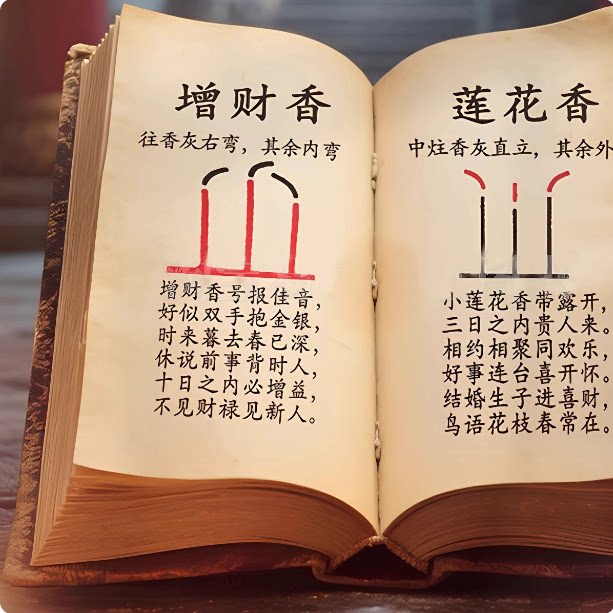 增财香
往香灰右弯，其余内弯
增财香号报佳音，
好似双手抱金银，
时来暮去春已深，
休说前事背时人，
十日之内必增益，
不见财禄见新人。
莲花香
中炷香灰直立，其余外
小莲花香带露开，
三日之内贵人来。
相约相聚同欢乐，
好事连台喜开怀。
结婚生子进喜财，
鸟语花枝春常在。